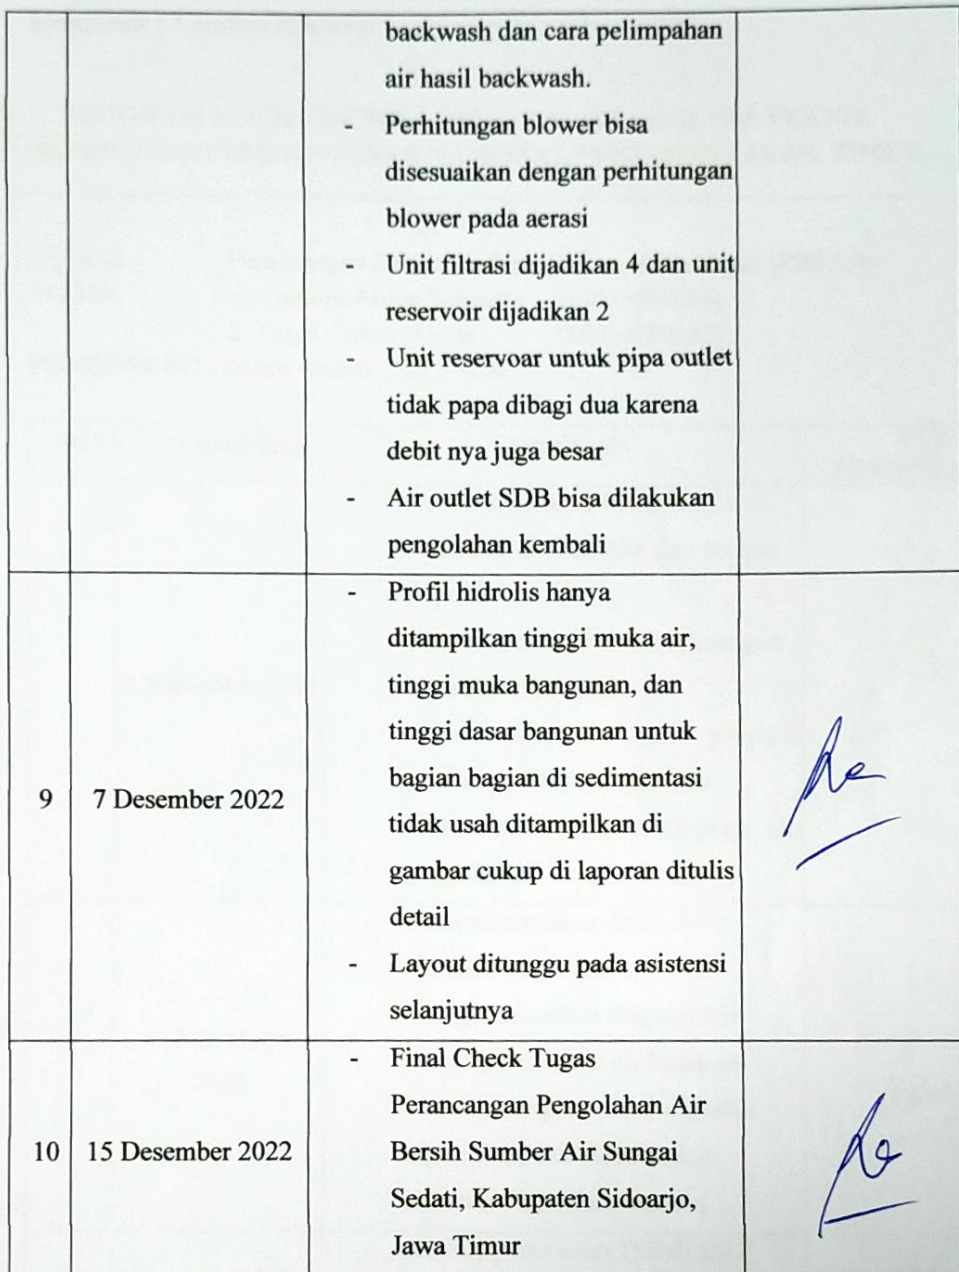 backwash dan cara pelimpahan
air hasil backwash.
- Perhitungan blower bisa
disesuaikan dengan perhitungan
blower pada aerasi
- Unit filtrasi dijadikan 4 dan unit
reservoir dijadikan 2
- Unit reservoar untuk pipa outlet
tidak papa dibagi dua karena
debit nya juga besar
- Air outlet SDB bisa dilakukan
pengolahan kembali
9
7 Desember 2022
- Profil hidrolis hanya
ditampilkan tinggi muka air,
tinggi muka bangunan, dan
tinggi dasar bangunan untuk
bagian bagian di sedimentasi
tidak usah ditampilkan di
gambar cukup di laporan ditulis
detail
- Layout ditunggu pada asistensi
selanjutnya
10
15 Desember 2022
- Final Check Tugas
Perancangan Pengolahan Air
Bersih Sumber Air Sungai
Sedati, Kabupaten Sidoarjo,
Jawa Timur